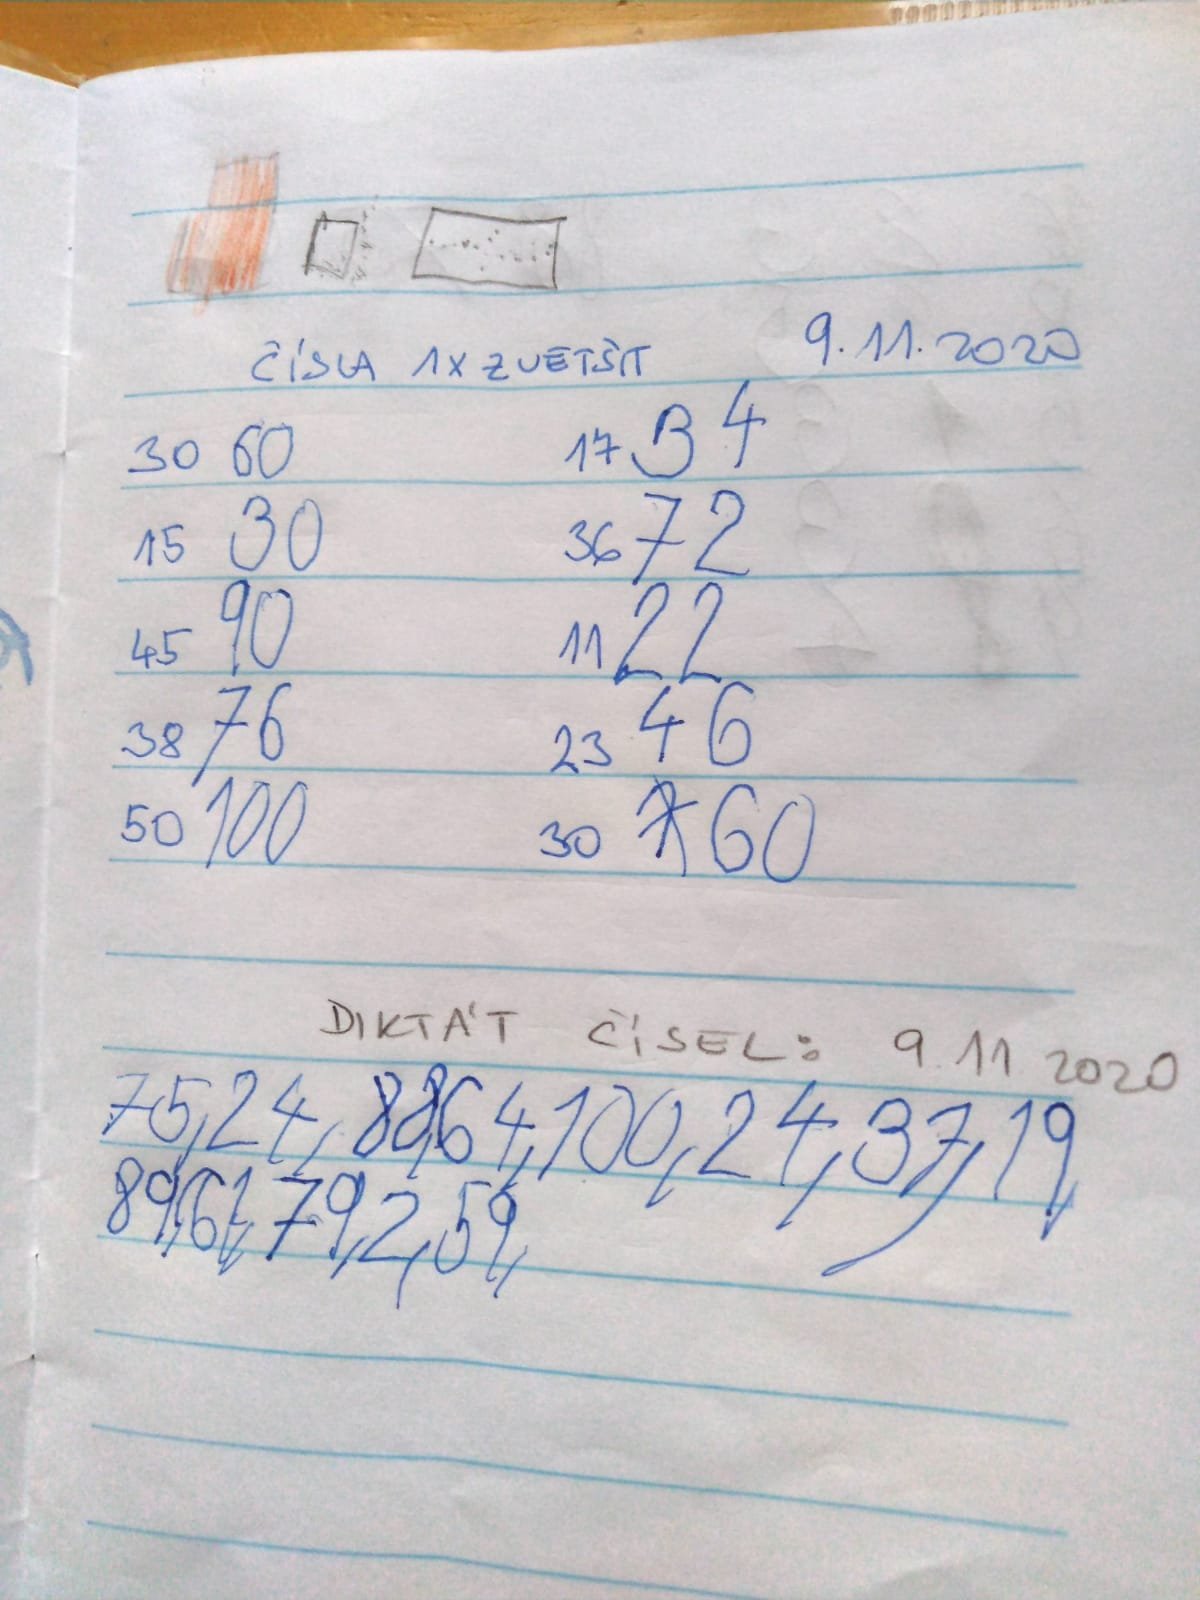 ČÍSLA 1X ZVĚTŠIT 9.11.2020
30 60 17 34
15 30 36 72
45 90 11 22
38 76 23 46
50 100 30 60
DIKTÁT ČÍSEL: 9.11 2020
75,24,88,64,100,24,37,19,
89,61,79,2,59,